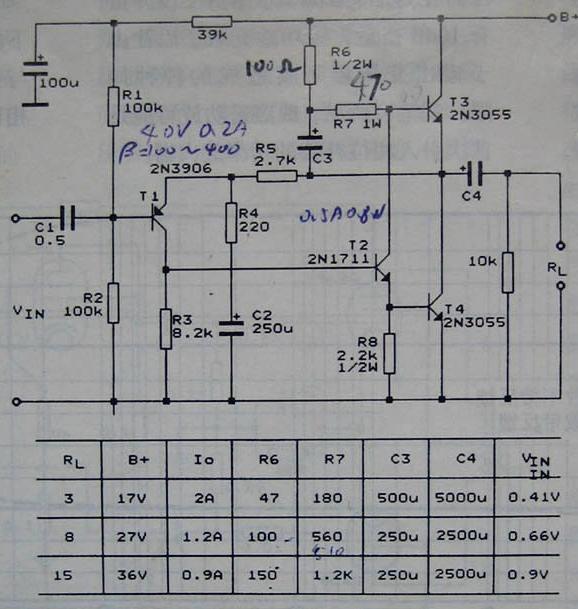 B+
39k
100u
R1
100k
100Ω
R6
1/2W
470
R7 1W
T3
2N3055
40V 0.2A
β=100~400
2N3906
R5
2.7k
C3
C4
T1
R4
220
0.5A0.8W
C1
0.5
T2
2N1711
10k
RL
VIN
R2
100k
R3
8.2k
C2
250u
T4
2N3055
R8
2.2k
1/2W
RL B+ Io R6 R7 C3 C4 VIN IN
3 17V 2A 47 180 500u 5000u 0.41V
8 27V 1.2A 100 560 250u 2500u 0.66V
15 36V 0.9A 150 1.2K 250u 2500u 0.9V